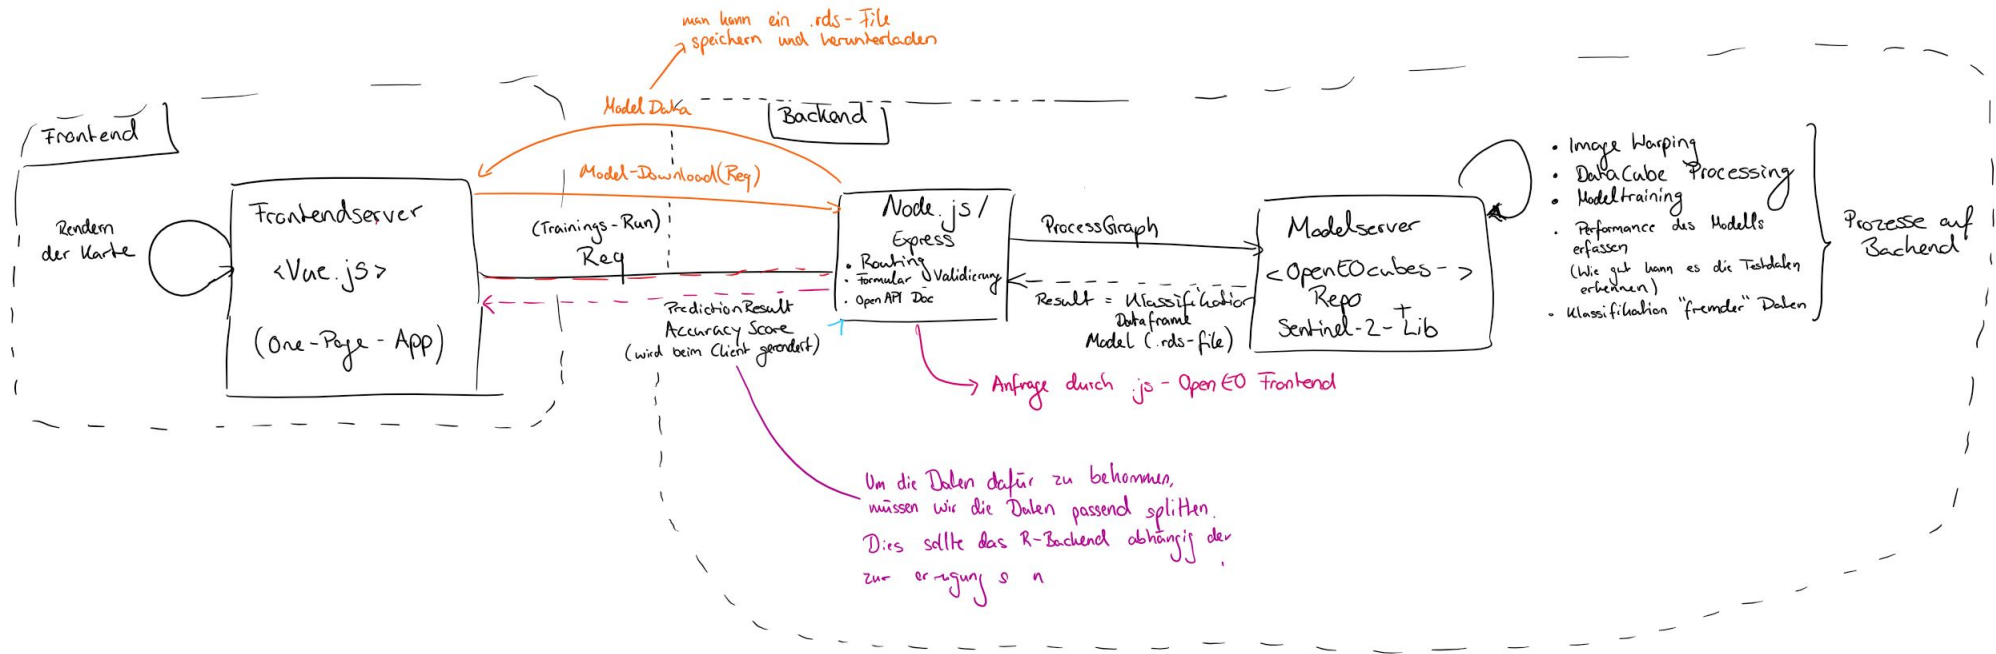 man kann ein .rds-File
speichern und herunterladen
Model Data
Frontend
Backend
Model-Download(Req)
Rendern
der Karte
Frontendserver
<Vue.js>
(One-Page-App)
(Trainings-Run)
Req
PredictionResult
Accuracy Score
(wird beim Client gerendert)
Node.js/
Express
• Routing
• Formular Validierung
• OpenAPI Doc
ProcessGraph
Result = Klassifikation
Dataframe
Model (.rds-file)
Modelserver
<OpenEOcubes->
Repo
+
Sentinel-2-Lib
• Image Warping
• DataCube Processing
• Modeltraining
• Performance des Modells
erfassen
(Wie gut kann es die Testdaten
erkennen)
• Klassifikation "fremder" Daten
Prozesse auf
Backend
Anfrage durch .js-OpenEO Frontend
Um die Daten dafür zu bekommen,
müssen wir die Daten passend splitten.
Dies sollte das R-Backend abhängig der
zur